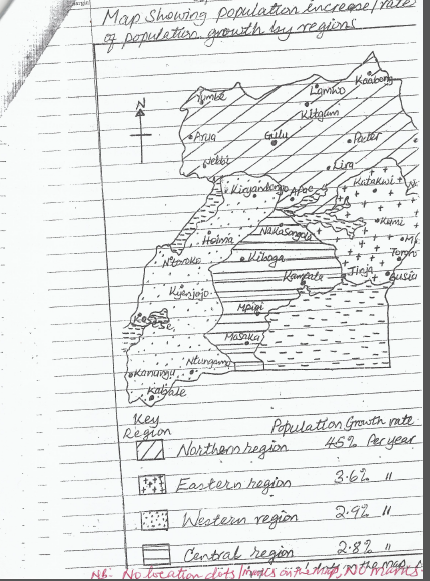 Map showing population increase/rate
of population growth by regions
Kaabong
Yumbe
Lamwo
Kitgum
N
Arua
Gulu
Pader
Nebbi
Lira
Katakwi
Kiryandongo
Apac
Kumi
Nakasongola
Hoima
Tororo
Ntoroko
Kiboga
Kampala
Jinja
Busia
Kyenjojo
Mpigi
Kasese
Masaka
Ntungamo
Kanungu
Kabale
Key
Region
Population Growth rate
Northern region 45% Per year
Eastern region 3.6% "
Western region 2.9% "
Central region 2.8% "
NB: No location dots/marks on the map, NO marks